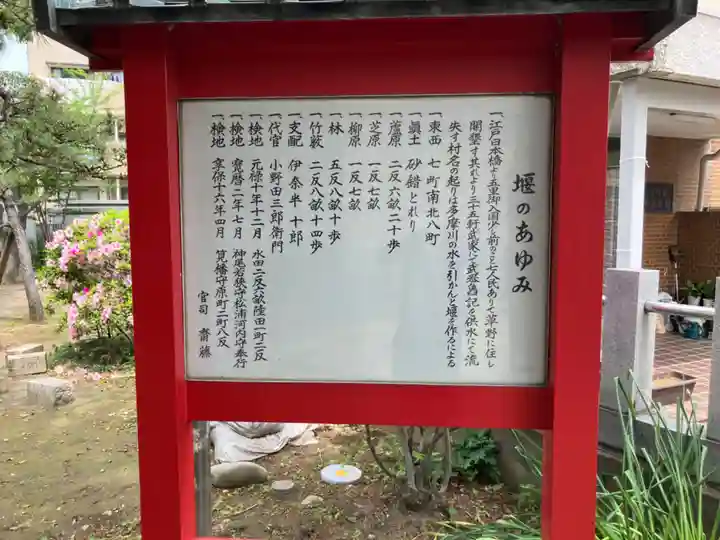 堰のあゆみ
一、江戸日本橋より五里御入国少し前のころ七人民ありて草野に住し
開墾す其れより三十五軒武家にて武器旧記を供水にて流
失す村名の起りは多摩川の水を引かんと堰を作るによる
一、東西 七町南北八町
一、眞土 砂錯とれり
一、蘆原 二反六畝二十歩
一、芝原 一反七畝
一、柳原 一反七畝
一、林 五反八畝十歩
一、竹藪 二反八畝十四歩
一、支配 伊奈半十郎
一、代官 小野田三郎衛門
一、検地 元禄十年十二月 水田二反六畝陸田一町二反
一、検地 寛暦二年七月 神尾若狭守松浦河内守奉行
一、検地 享保十六年四月 筧幡守原町二町八反
宮司 齋藤